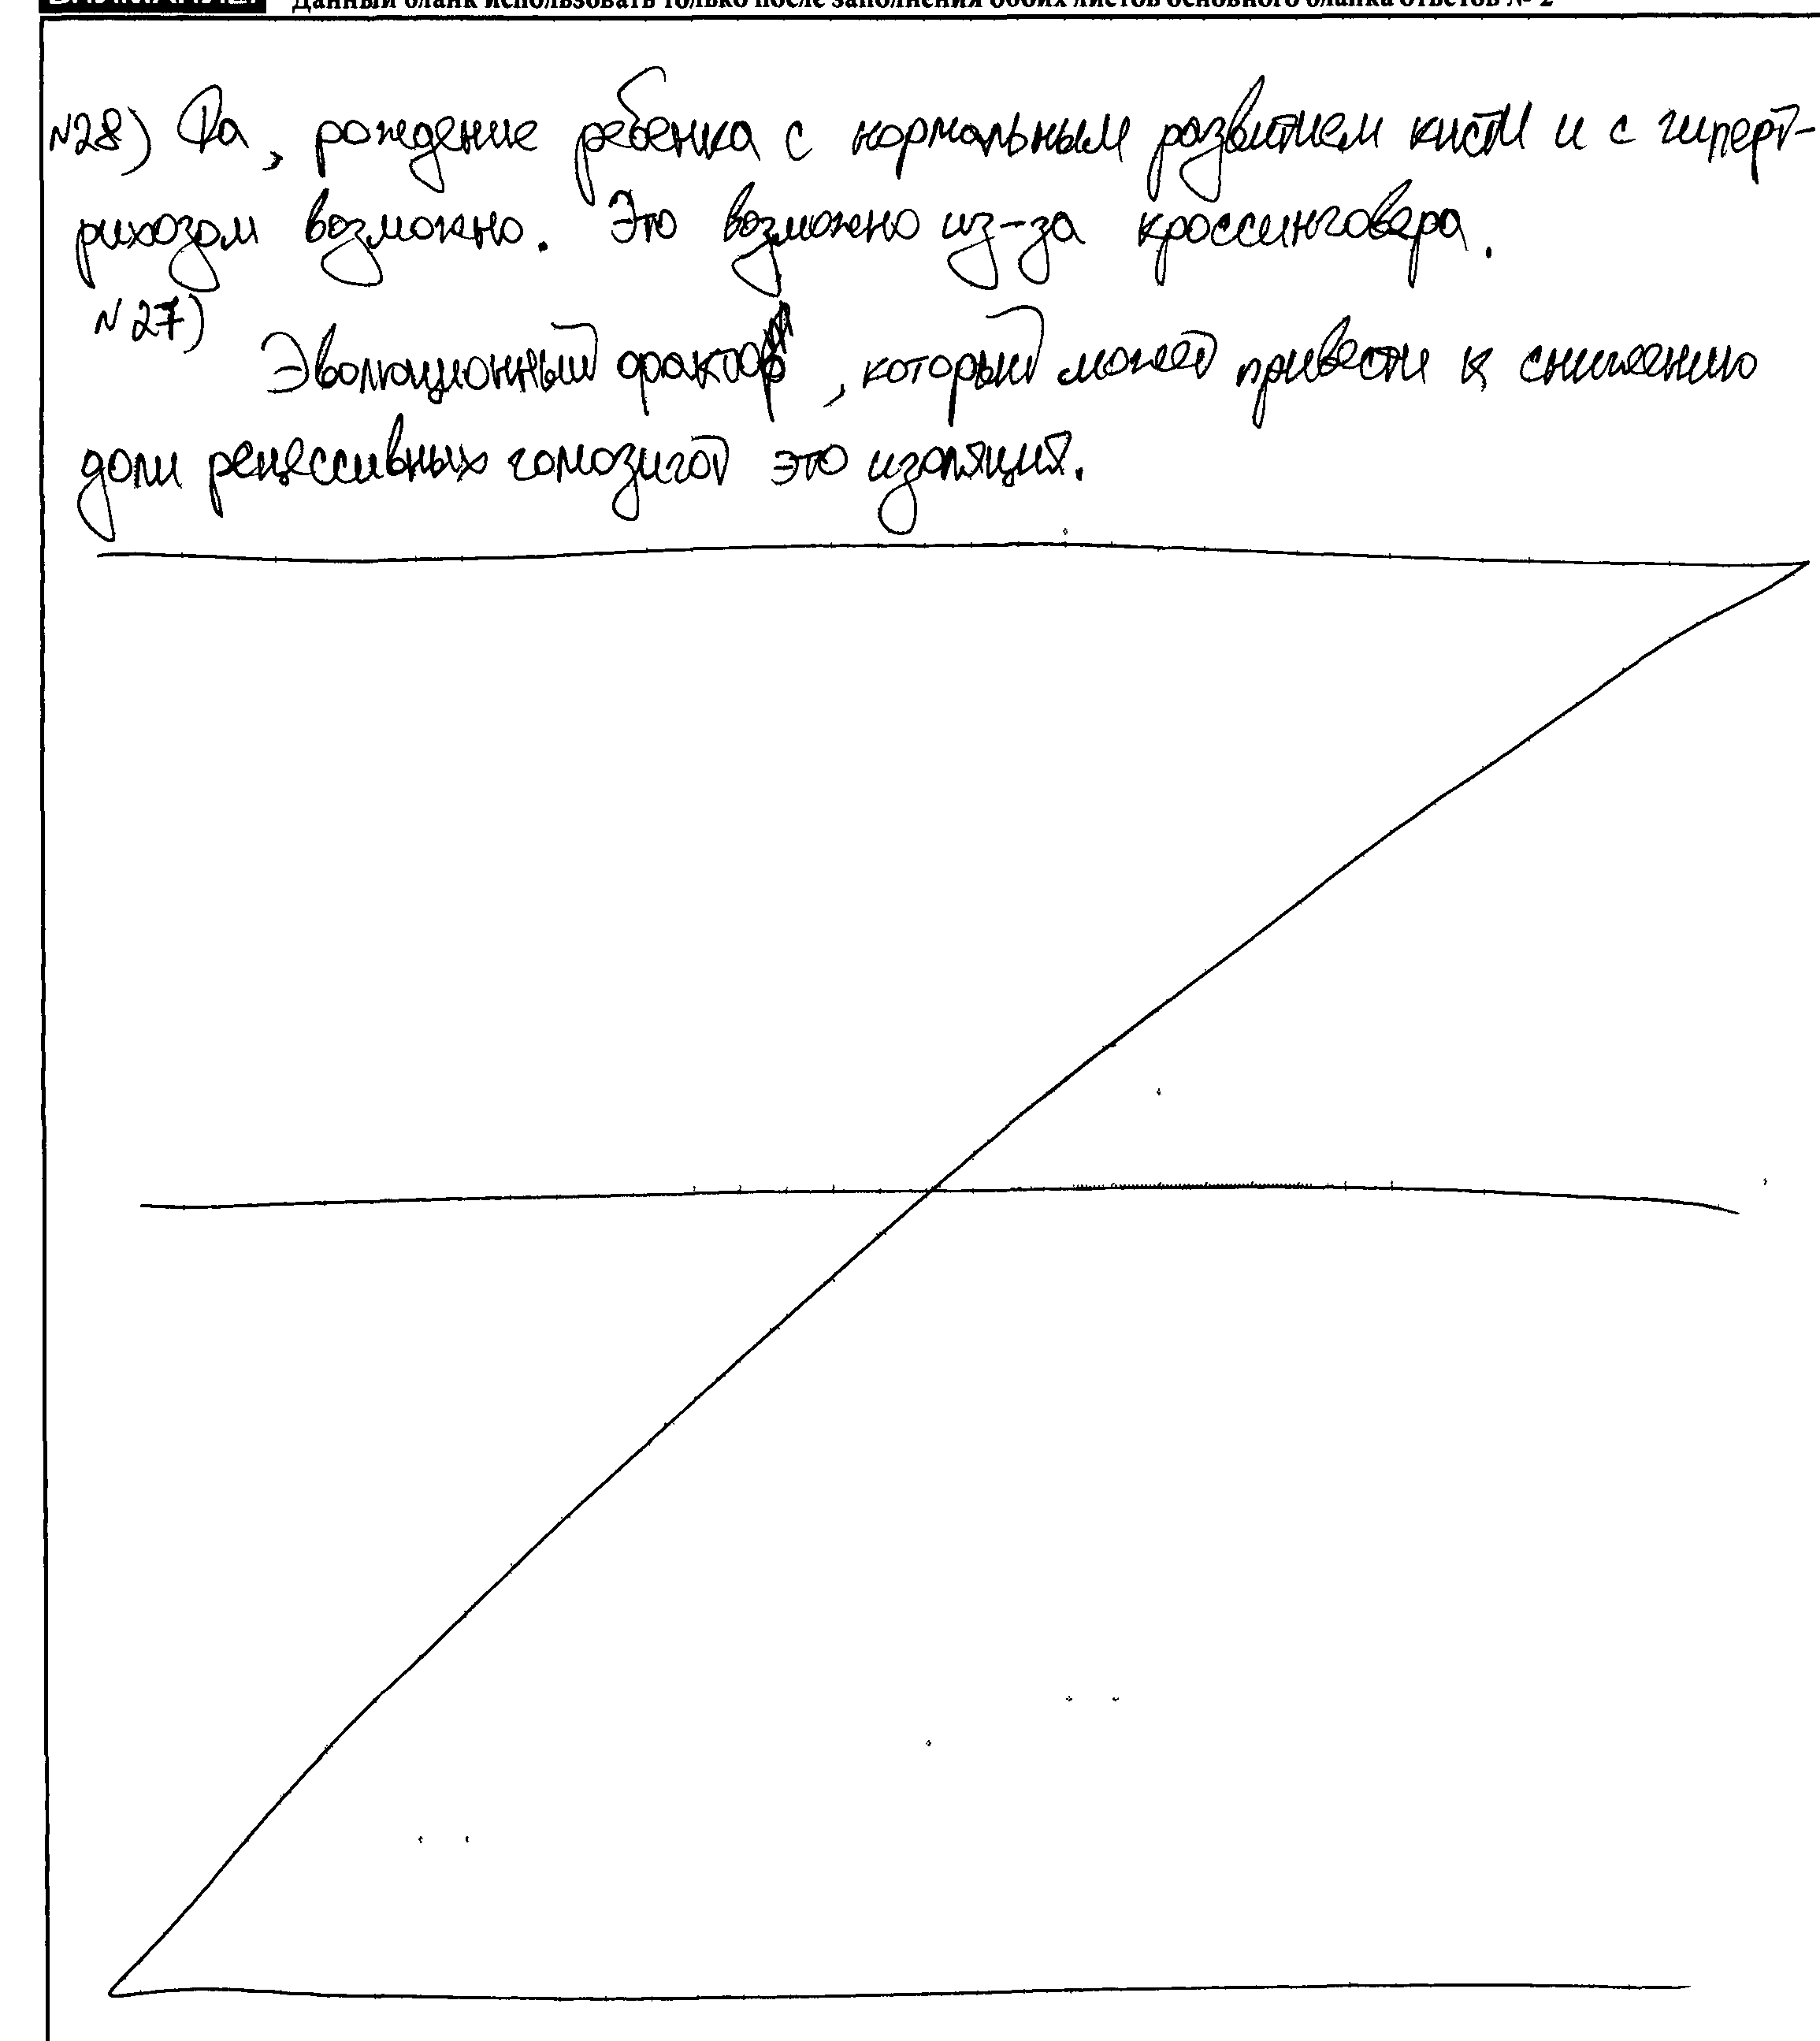 Данный бланк использовать только после заполнения обоих листов основного бланка ответов № 2
№28) Да, рождение ребенка с нормальным развитием кисти и с гиперт-
рихозом возможно. Это возможно из-за кроссинговера.
№27)
Эволюционный фактор, который может привести к снижению
доли рецессивных гомозигот это изоляция.